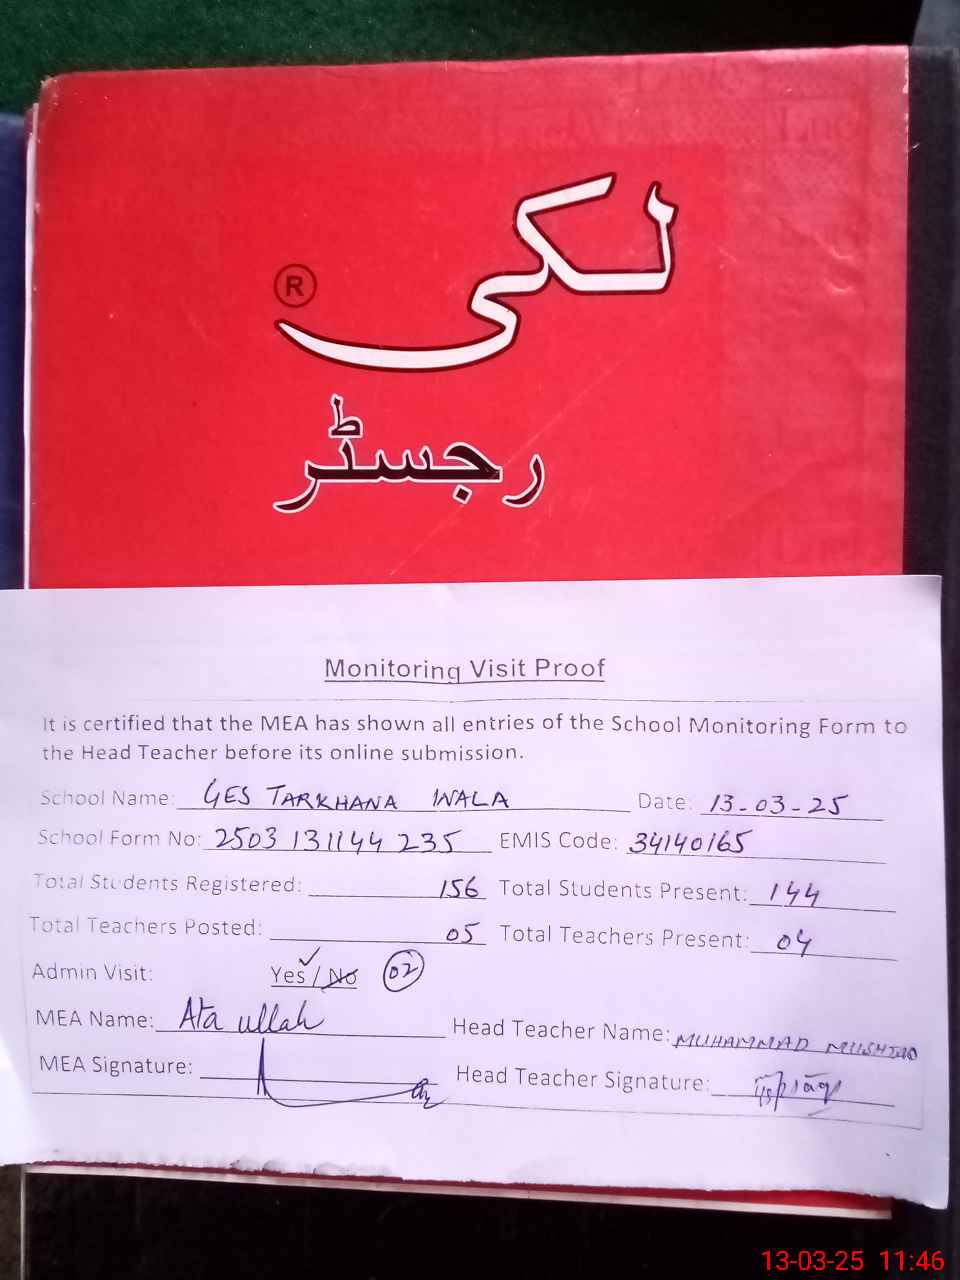 لکی
®
رجسٹر
Monitoring Visit Proof
It is certified that the MEA has shown all entries of the School Monitoring Form to
the Head Teacher before its online submission.
School Name: GES TARKHANA WALA Date: 13-03-25
School Form No: 2503 131144 235 EMIS Code: 34140165
Total Students Registered: 156 Total Students Present: 144
Total Teachers Posted: 05 Total Teachers Present: 04
Admin Visit: Yes ✓ / No 02
MEA Name: Ata ullah Head Teacher Name: MUHAMMAD MUSHTAQ
MEA Signature: Head Teacher Signature:
13-03-25 11:46